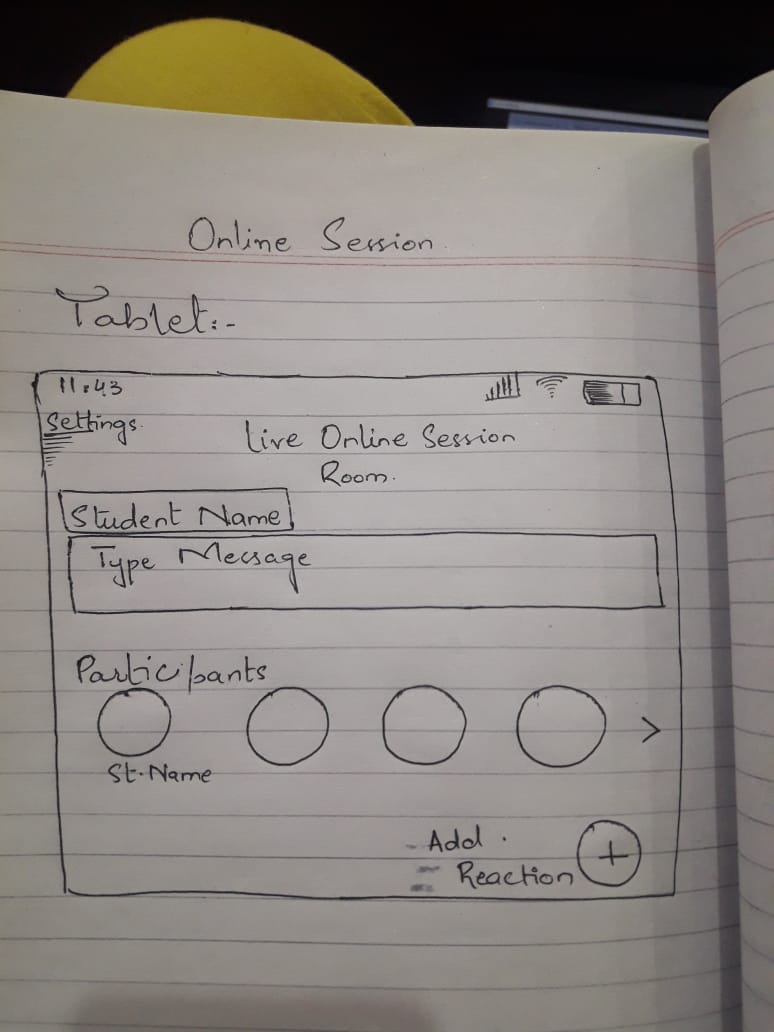 Online Session
Tablet:-
11:43
Settings
Live Online Session
Room.
Student Name
Type Message
Participants
>
St. Name
- Add .
Reaction +